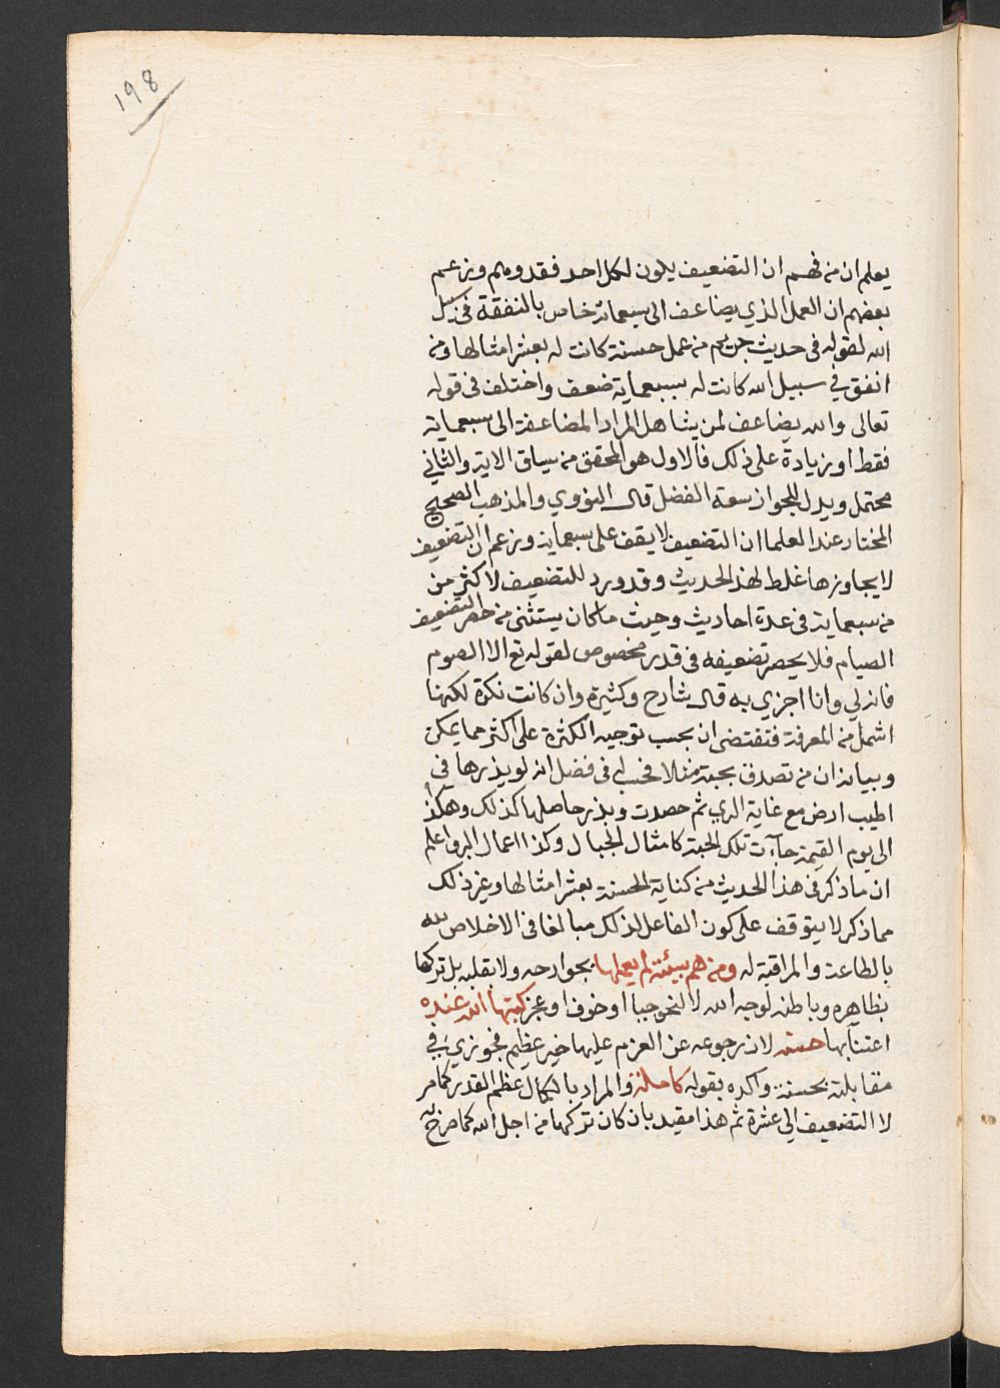 198
يعلم ان من فهم ان التضعيف يكون لكل احد فقد وهم وزعم
بعضهم ان العمل الذي يضاعف الى سبعمائة خاص بالنفقة في سبيل
الله لقوله في حديث خريم من عمل حسنة كانت له بعشر امثالها ومن
انفق في سبيل الله كانت له بسبعماية ضعف واختلف في قوله
تعالى والله يضاعف لمن يشا هل المراد المضاعفة الى سبعماية
فقط او زيادة على ذلك فالاول هو المحقق من سياق الاية والثاني
محتمل ويدل للجواز سعة الفضل قال النووي والمذهب الصحيح
المختار عند العلما ان التضعيف لا يقف على سبعماية وزعم ان التضعيف
لا يجاوزها غلط لهذا الحديث وقد ورد للتضعيف لاكثر من
من سبعماية في عدة احاديث وحيث ما كان يستثنى من حصر التضعيف
الصيام فلا يحصر تضعيفه في قدر مخصوص لقوله تع الا الصوم
فانه لي وانا اجزي به قال شارح وكثيرة وان كانت نكرة لكنها
اشمل من المعرفة فتقتضي ان بحسب توجيه الكثرة على اكثر مما يمكن
وبيانه ان من تصدق بحبة مثلا فحسب له في فضل الله لو بذرها في
اطيب ارض مع غاية الري ثم حصدت وبذر حاصلها كذلك وهكذا
الى يوم القيمة جاءت تلك الحبة كامثال الجبال وكذا اعمال البر واعلم
ان ما ذكر في هذا الحديث من كتابة الحسنة بعشر امثالها وغير ذلك
مما ذكر لا يتوقف على كون الفاعل لذلك مبالغا في الاخلاص لله
بالطاعة والمراقبة له ومن هم بسيئة لم يعملها بجوارحه ولا بقلبه بل تركها
بظاهره وباطنه لوجه الله لا لنحو حيا او خوف او عجز كتبها الله عنده
اعتنا بها حسنة لان رجوعه عن العزم عليها خير عظيم فجوزي في
مقابلته بحسنة واكده بقوله كاملة والمراد بالكمال عظم القدر كما مر
لا التضعيف الى عشرة ثم هذا مقيد بان كان تركها من اجل الله كما صرح به